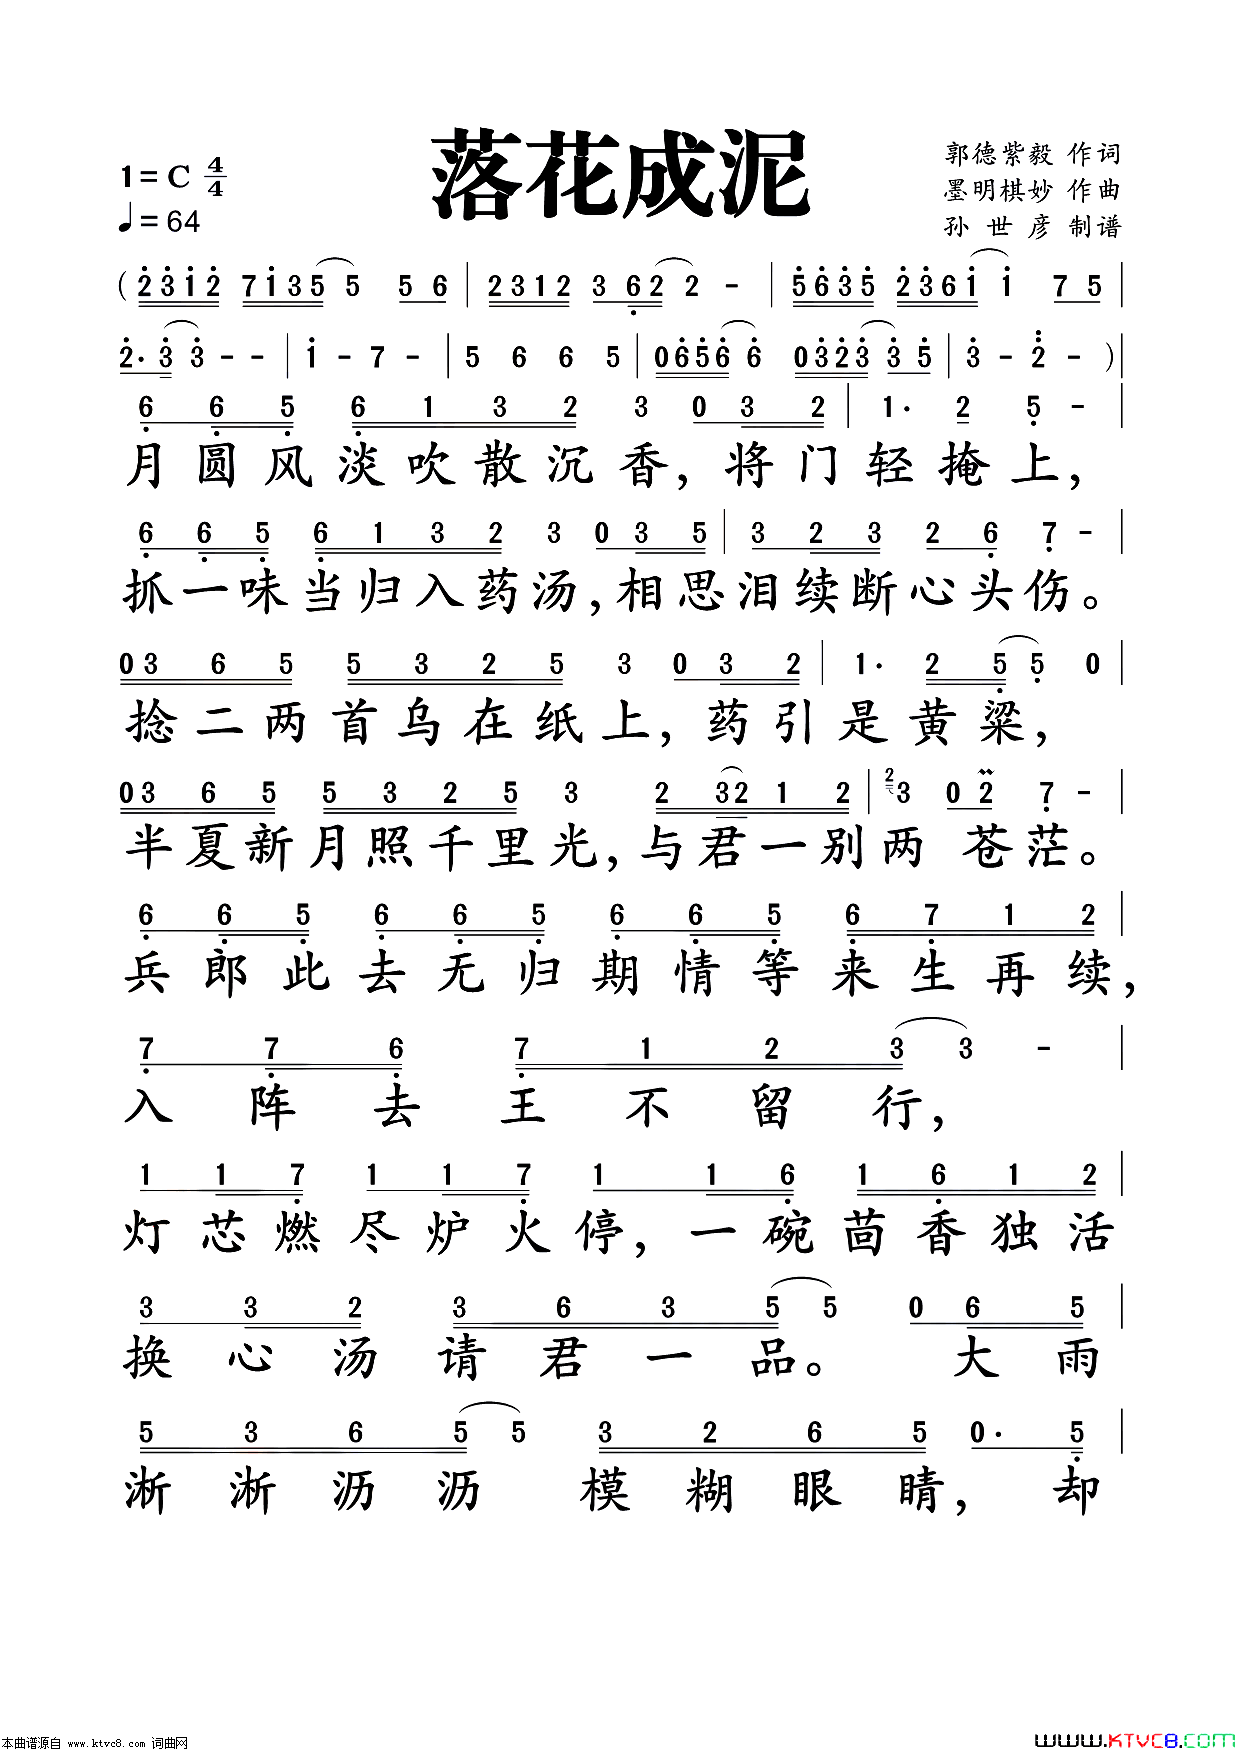 落花成泥
1=C 4/4
♩=64
郭德紫毅 作词
墨明棋妙 作曲
孙世彦 制谱
( 2 3 1 2 7 1 3 5 5 5 6 | 2 3 1 2 3 6 2 2 - | 5 6 3 5 2 3 6 1 1 7 5 |
2· 3 3 - - | 1 - 7 - | 5 6 6 5 | 0 6 5 6 6 0 3 2 3 3 5 | 3 - 2 - ) |
6 6 5 6 1 3 2 3 0 3 2 | 1· 2 5 - |
月圆风淡吹散沉香，将门轻掩上，
6 6 5 6 1 3 2 3 0 3 5 | 3 2 3 2 6 7 - |
抓一味当归入药汤，相思泪续断心头伤。
0 3 6 5 5 3 2 5 3 0 3 2 | 1· 2 5 5 0 |
捻二两首乌在纸上，药引是黄粱，
0 3 6 5 5 3 2 5 3 2 3 2 1 2 | 2 3 0 2 7 - |
半夏新月照千里光，与君一别两苍茫。
6 6 5 6 6 5 6 6 5 6 7 1 2 |
兵郎此去无归期情等来生再续，
7 7 6 7 1 2 3 3 - |
入阵去王不留行，
1 1 7 1 1 7 1 1 6 1 6 1 2 |
灯芯燃尽炉火停，一碗茴香独活
3 3 2 3 6 3 5 5 0 6 5 |
换心汤请君一品。大雨
5 3 6 5 5 3 2 6 5 0· 5 |
淅淅沥沥模糊眼睛，却
本曲谱源自 www.ktvc8.com 词曲网
www.KTVC8.COM